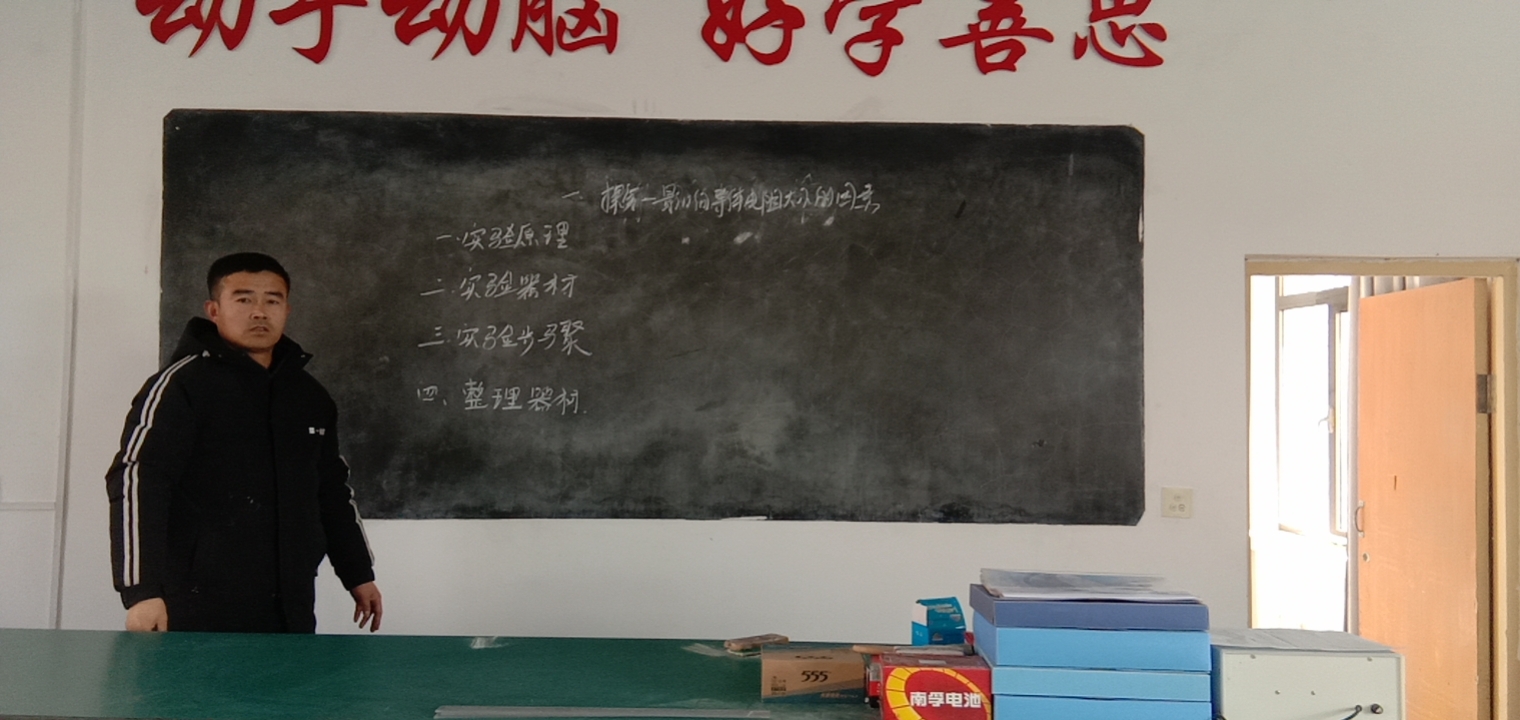 动手动脑 好学善思
一. 探究一影响导体电阻大小的因素
一.实验原理
二.实验器材
三.实验步骤
四、整理器材.
555
南孚电池